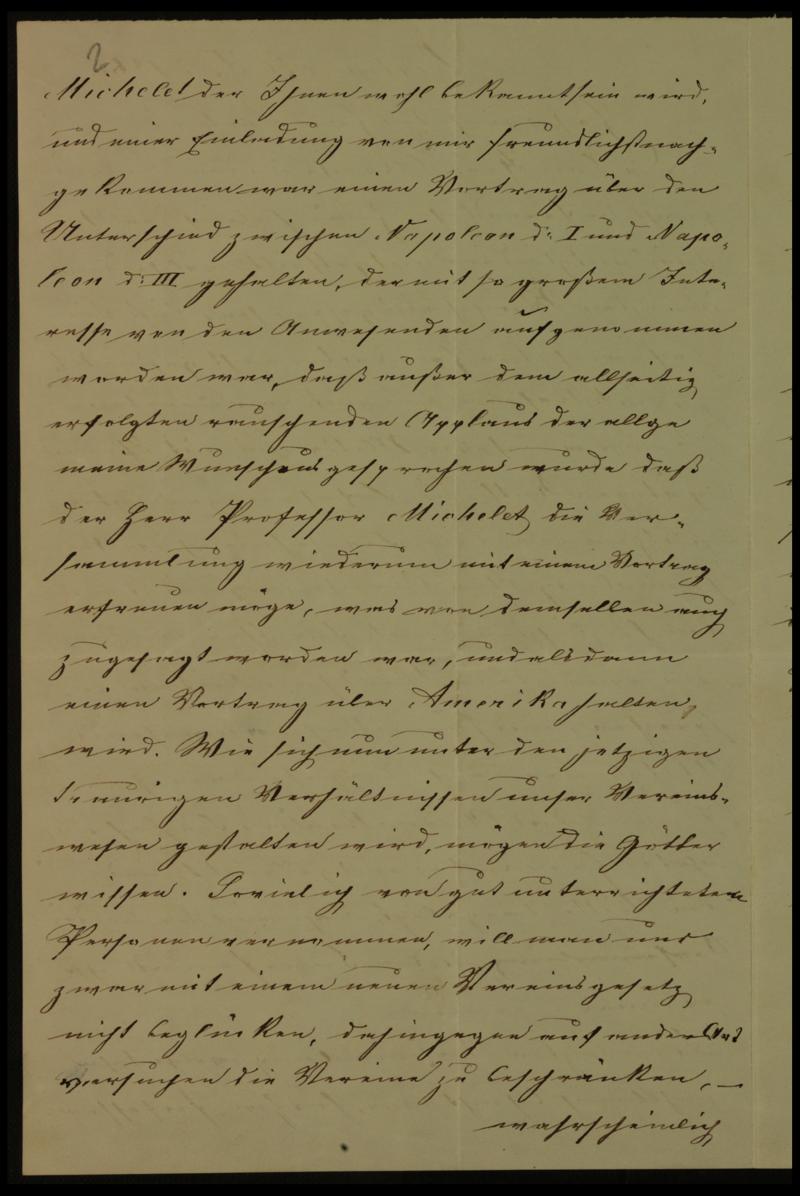 2
Michelet der Ihnen wohl bekannt sein wird,
und einer Einladung von mir freundlichst nach-
gekommen war einen Vortrag über den
Unterschied zwischen Napoleon d: I und Napo-
leon d: III gehalten, der mit so großem Inte-
resse von den Anwesenden aufgenommen
worden war, daß außer dem allseitig
erfolgten rauschenden Applaus der allge
meine Wunsch ausgesprochen wurde daß
der Herr Professor Michelet die Ver-
sammlung wiederum mit einem Vortrag
erfreuen möge, was von demselben auch
zugesagt worden war, und alsdann
einen Vortrag über Amerika halten,
wird. Wie sich nun unter den jetzigen
traurigen Verhältnissen unser Vereins-
wesen gestalten wird, mögen die Götter
wissen. Soviel ich von gut unterrichteten
Personen vernommen, will man uns
zwar mit einem neuen Vereinsgesetz
nicht beglücken, dahingegen auf andere Art
versuchen die Vereine zu beschränken, —
wahrscheinlich